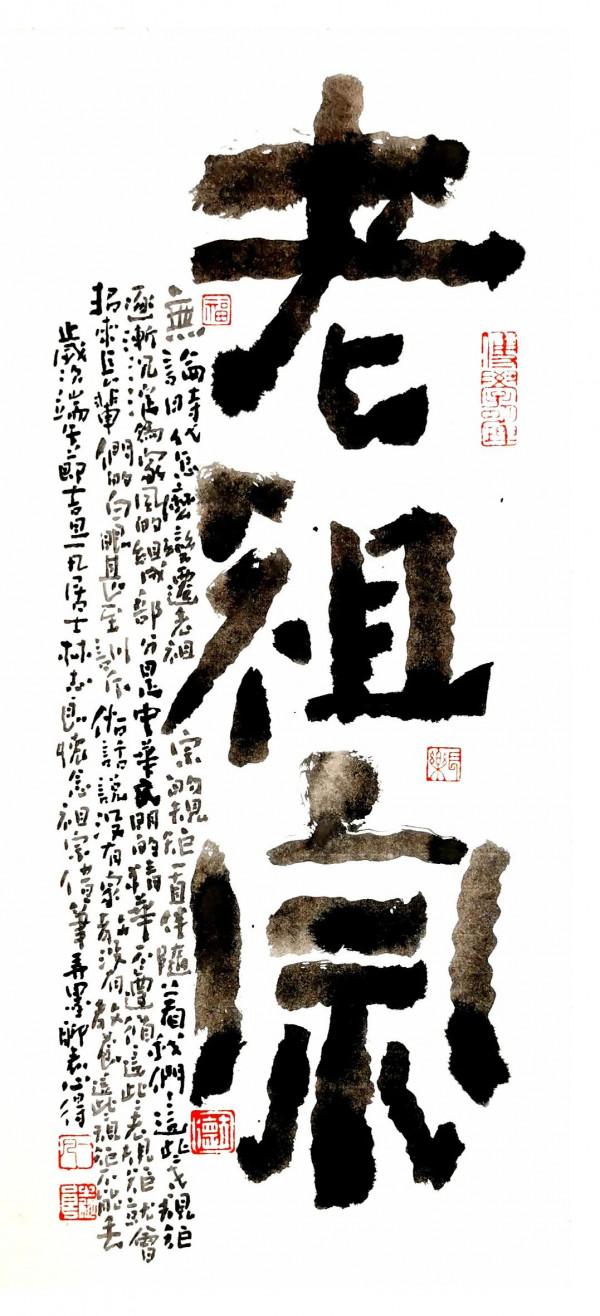 老祖宗
無論時代怎麼變遷老祖宗的規矩一直伴隨着我們這些老規矩
逐漸沉淀為家風的組成部分是中華文明的精華不遵循這些老規矩就會
招來長輩們的白眼甚至訓斥俗話說沒有家教沒有教養這些規矩不能丢
歲次端午節吉旦一凡居士林志良懷念祖宗借筆弄墨聊表心得
福
長樂